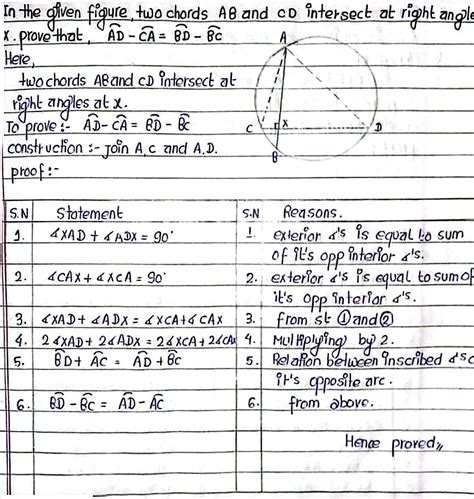 In the given figure, two chords AB and CD intersect at right angle
x. prove that, A͡D - C͡A = B͡D - B͡C
Here,
two chords AB and CD intersect at
right angles at x.
To prove :- A͡D - C͡A = B͡D - B͡C
construction :- join A, C and A, D.
proof :-
A
C
X
D
B
S.N Statement S.N Reasons.
1. ∡XAD + ∡ADX = 90° 1. exterior ∡'s is equal to sum
of it's opp interior ∡'s.
2. ∡CAX + ∡XCA = 90° 2. exterior ∡'s is equal to sum of
it's opp interior ∡'s.
3. ∡XAD + ∡ADX = ∡XCA + ∡CAX 3. from st ① and ②
4. 2∡XAD + 2∡ADX = 2∡XCA + 2∡CA 4. Multiplying by 2.
5. B͡D + A͡C = A͡D + B͡C 5. Relation between inscribed ∡'s
it's opposite arc.
6. B͡D - B͡C = A͡D - A͡C 6. from above.
Hence proved,,